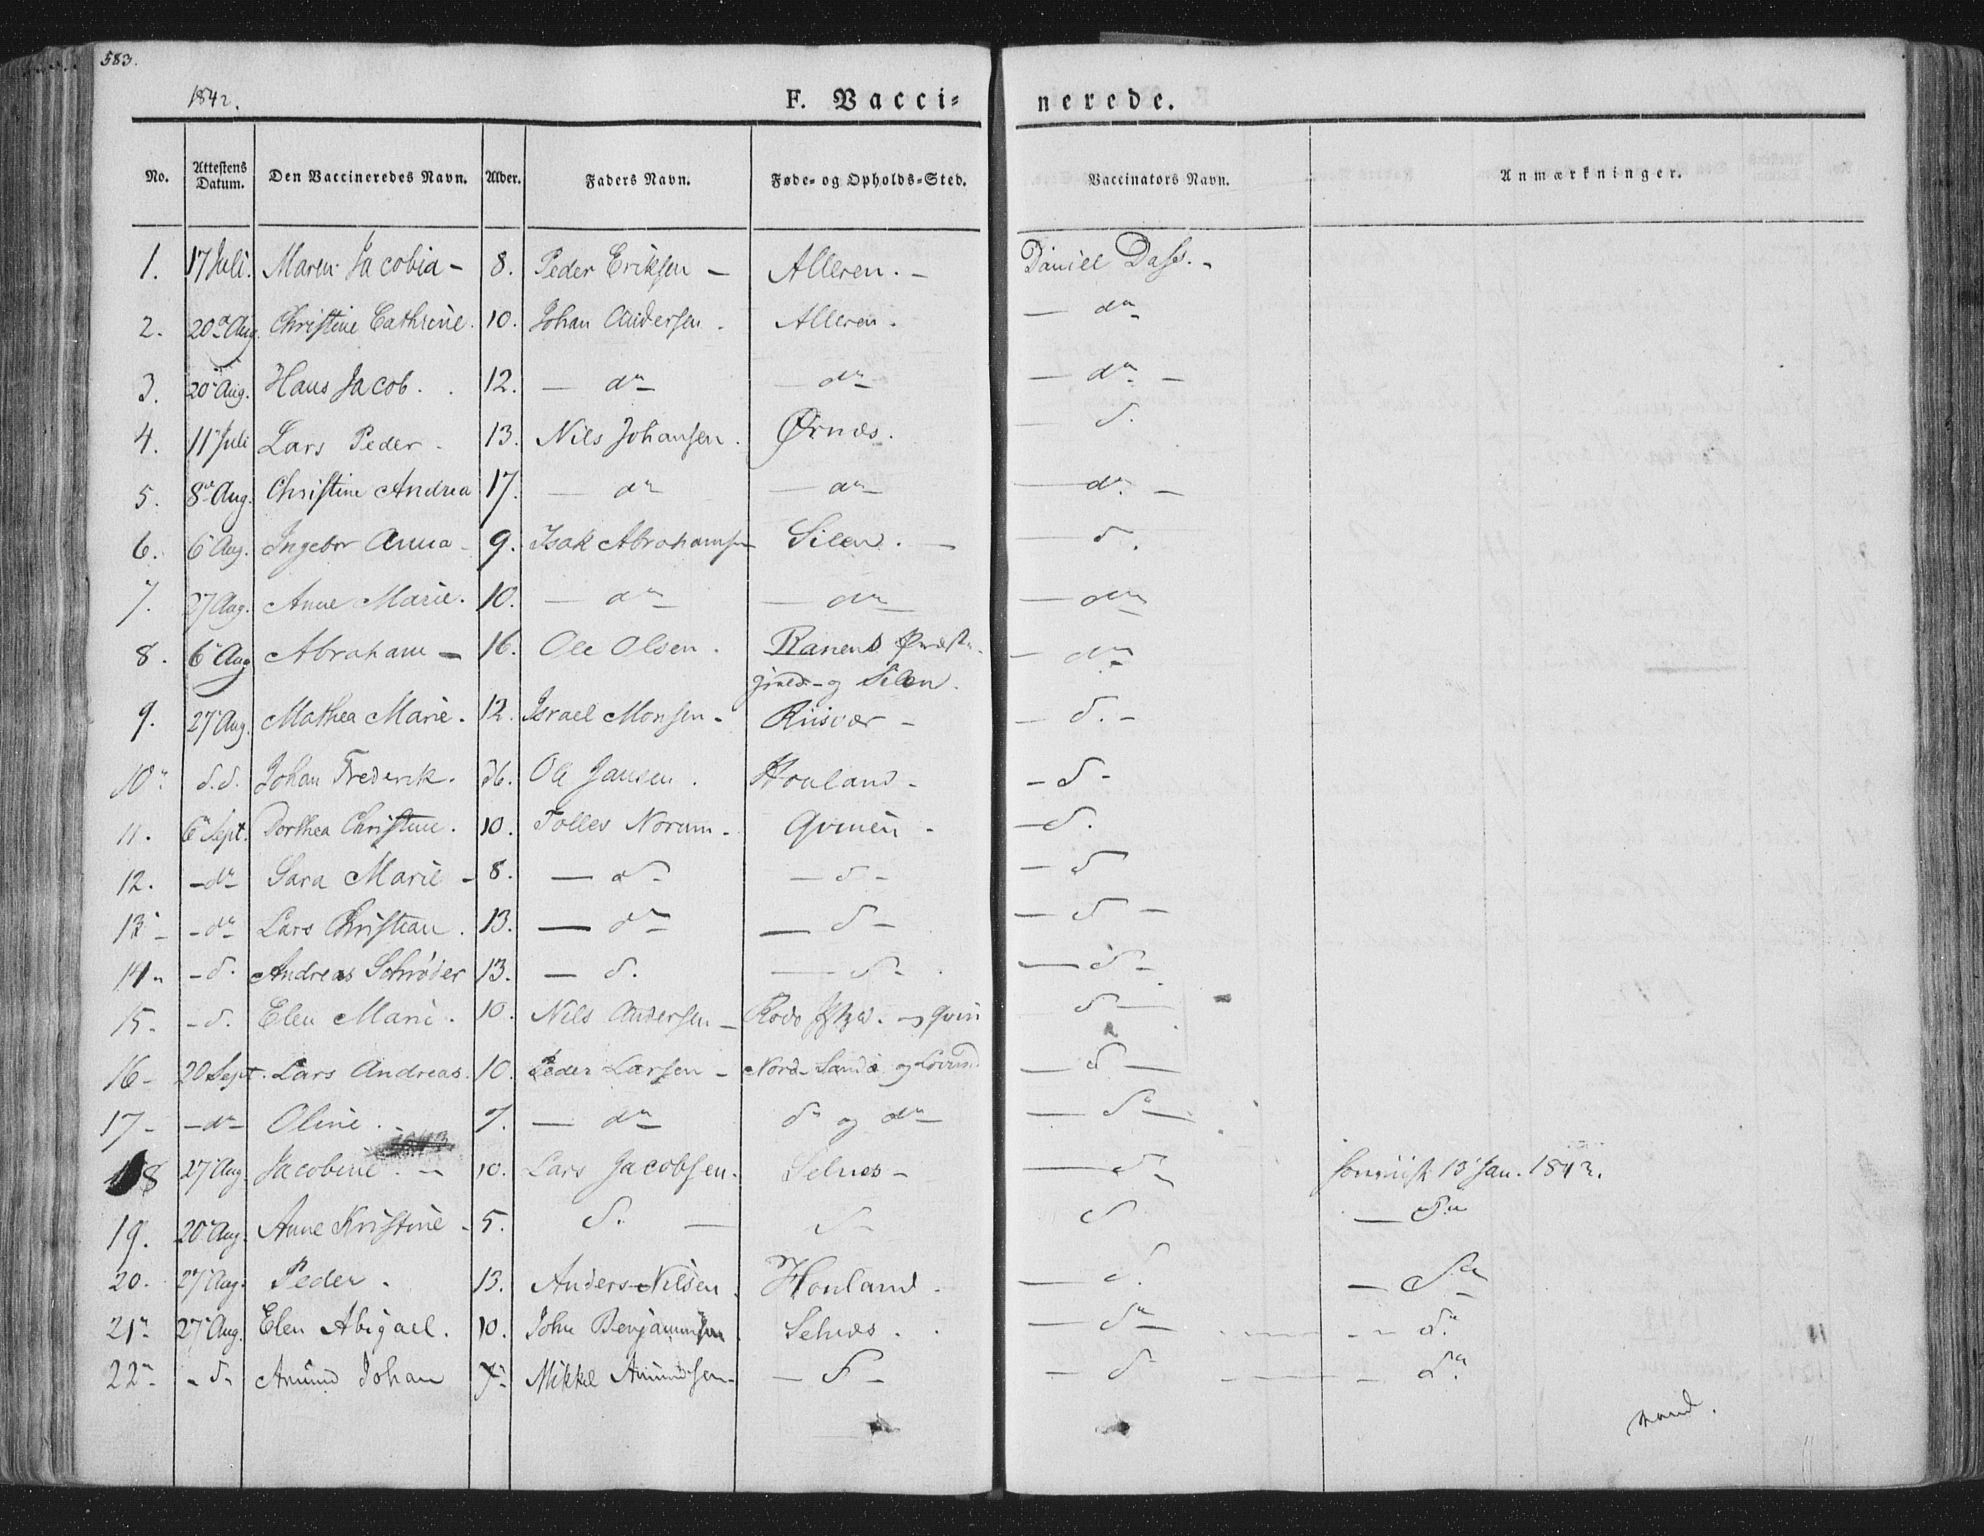 583.
1842.
F. Vacci-
nerede.
No. Attestens Datum. Den Vaccineredes Navn. Alder. Faders Navn. Føde- og Opholds-Sted. Vaccinators Navn. Anmærkninger.
1. 17 Juli. Maren Jacobia - 8. Peder Eriksen - Alleren. - Daniel Dass. -
2. 20de Aug. Christine Cathrine. 10. Johan Andersen. Alleren. - do
3. 20 Aug. Hans Jacob. 12. - do - - do - - do. -
4. 11 Juli Lars Peder - 13. Nils Johansen. Ørnæs. - d.
5. 8de Aug. Christine Andrea 17. - do - do - do. -
6. 6 Aug. Ingebor Anna - 9. Isak Abrahamsen Silen. - - d.
7. 27 Aug. Anne Marie. 10. - do - do - do
8. 6 Aug Abraham - 16. Ole Olsen. Ranens Præste- - do
gield - og Silen.
9. 27 Aug. Mathea Marie. 12. Israel Monsen - Riisvær - - d. -
10. d.d. Johan Frederik. Ole Jansen. Houland - - d -
11. 6 Sept. Dorthea Christine. 10. Tolles Norum - - d.
12. - do Sara Marie - 8. - d. - d - - d
13 - - do Lars Christian. 13. - do - d - - d -
14. - d. Andreas Schrøder 13. - d. - d - - d -
15. - d. Elen Marie. 10. Nils Andersen - Rødø - d -
16 - 20 Sept. Lars Andreas. 10. Peder Larsen - Nord-Sandø og Lovund - d -
17 - - do - Oline. 7. - do do og do - do -
18 27 Aug. Jacobine. - 10. Lars Jacobsen. Selnes - - d 13 Jan. 1843.
19. 20 Aug. Anne Kristine - 5. d. - d - d - do
20. 27 Aug. Peder. 13. Anders Nilsen. Houland. - d. - do
21. 27 Aug. Elen Abigael. 10. John Benjaminsen Selnes. - do - - do
22. - d - Amund Johan 7. Mikkel Amundsen - - d - - d - - do
vend.